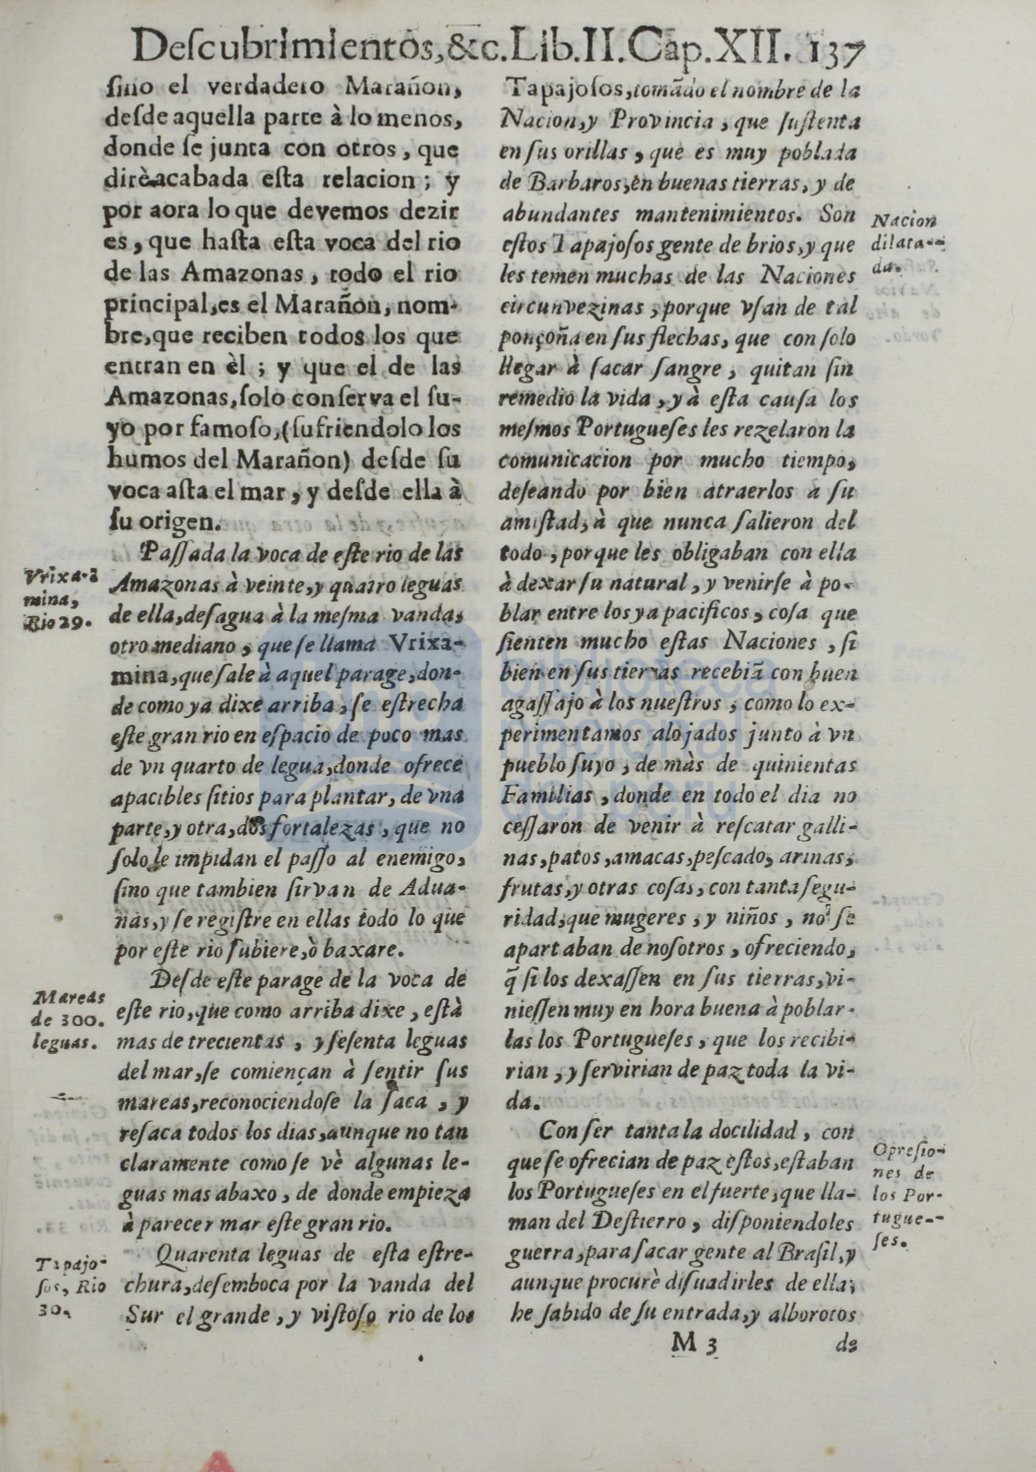 Deſcubrimientos,&c.Lib.II.Cap.XII. 137
ſino el verdadero Marañon,
deſde aquella parte à lo menos,
donde ſe junta con otros, que
dirè acabada eſta relacion; y
por aora lo que devemos dezir
es, que haſta eſta voca del rio
de las Amazonas, todo el rio
principal,es el Marañon, nom-
bre,que reciben todos los que
entran en èl; y que el de las
Amazonas,ſolo conſerva el ſu-
yo por famoſo,(ſufriendolo los
humos del Marañon) deſde ſu
voca aſta el mar, y deſde ella à
ſu origen.
Paſſada la voca de eſte rio de las
Amazonas à veinte,y quatro leguas
de ella,deſagua à la meſma vanda,
otro mediano, que ſe llama Vrixa-
mina,que ſale à aquel parage,don-
de como ya dixe arriba, ſe eſtrecha
eſte gran rio en eſpacio de poco mas
de vn quarto de legua,donde ofrece
apacibles ſitios para plantar, de vna
parte,y otra,dos fortalezas, que no
ſolo le impidan el paſſo al enemigo,
ſino que tambien ſirvan de Adua-
nas,y ſe regiſtre en ellas todo lo que
por eſte rio ſubiere,ò baxare.
Deſde eſte parage de la voca de
eſte rio,que como arriba dixe, eſtà
mas de trecientas, y ſeſenta leguas
del mar,ſe comiençan à ſentir ſus
mareas,reconociendoſe la ſaca, y
reſaca todos los dias,aunque no tan
claramente como ſe vè algunas le-
guas mas abaxo, de donde empieza
à parecer mar eſte gran rio.
Quarenta leguas de eſta eſtre-
chura,deſemboca por la vanda del
Sur el grande, y viſtoſo rio de los
Vrixa-
mina,
Rio 29.
Mareas
de 300.
leguas.
Tapajo-
ſos, Rio
30.
Tapajoſos,tomãdo el nombre de la
Nacion,y Provincia, que ſuſtenta
en ſus orillas, que es muy poblada
de Barbaros,en buenas tierras, y de
abundantes mantenimientos. Son
eſtos Tapajoſos gente de brios,y que
les temen muchas de las Naciones
circunvezinas, porque vſan de tal
ponçoña en ſus flechas, que con ſolo
llegar à ſacar ſangre, quitan ſin
remedio la vida, y à eſta cauſa los
meſmos Portugueſes les rezelaron la
comunicacion por mucho tiempo,
deſeando por bien atraerlos a ſu
amiſtad, à que nunca ſalieron del
todo, porque les obligaban con ella
à dexar ſu natural, y venirſe à po-
blar entre los ya pacificos, coſa que
ſienten mucho eſtas Naciones, ſi
bien en ſus tierras recebiã con buen
agaſſajo à los nueſtros, como lo ex-
perimentamos alojados junto à vn
pueblo ſuyo, de màs de quinientas
Familias, donde en todo el dia no
ceſſaron de venir à reſcatar galli-
nas,patos,amacas,peſcado, arinas,
frutas,y otras coſas, con tanta ſegu-
ridad,que mugeres, y niños, no ſe
apartaban de noſotros, ofreciendo,
q̃ ſi los dexaſſen en ſus tierras,vi-
nieſſen muy en hora buena à poblar-
las los Portugueſes, que los recibi-
rian, y ſervirian de paz toda la vi-
da.
Con ſer tanta la docilidad, con
que ſe ofrecian de paz eſtos,eſtaban
los Portugueſes en el fuerte,que lla-
man del Deſtierro, diſponiendoles
guerra,para ſacar gente al Braſil,y
aunque procurè diſuadirles de ella,
he ſabido de ſu entrada,y alborotos
Nacion
dilata-
da.
Opreſio-
nes de
los Por-
tugue-
ſes.
M 3
de
biblioteca
nacional
del perú